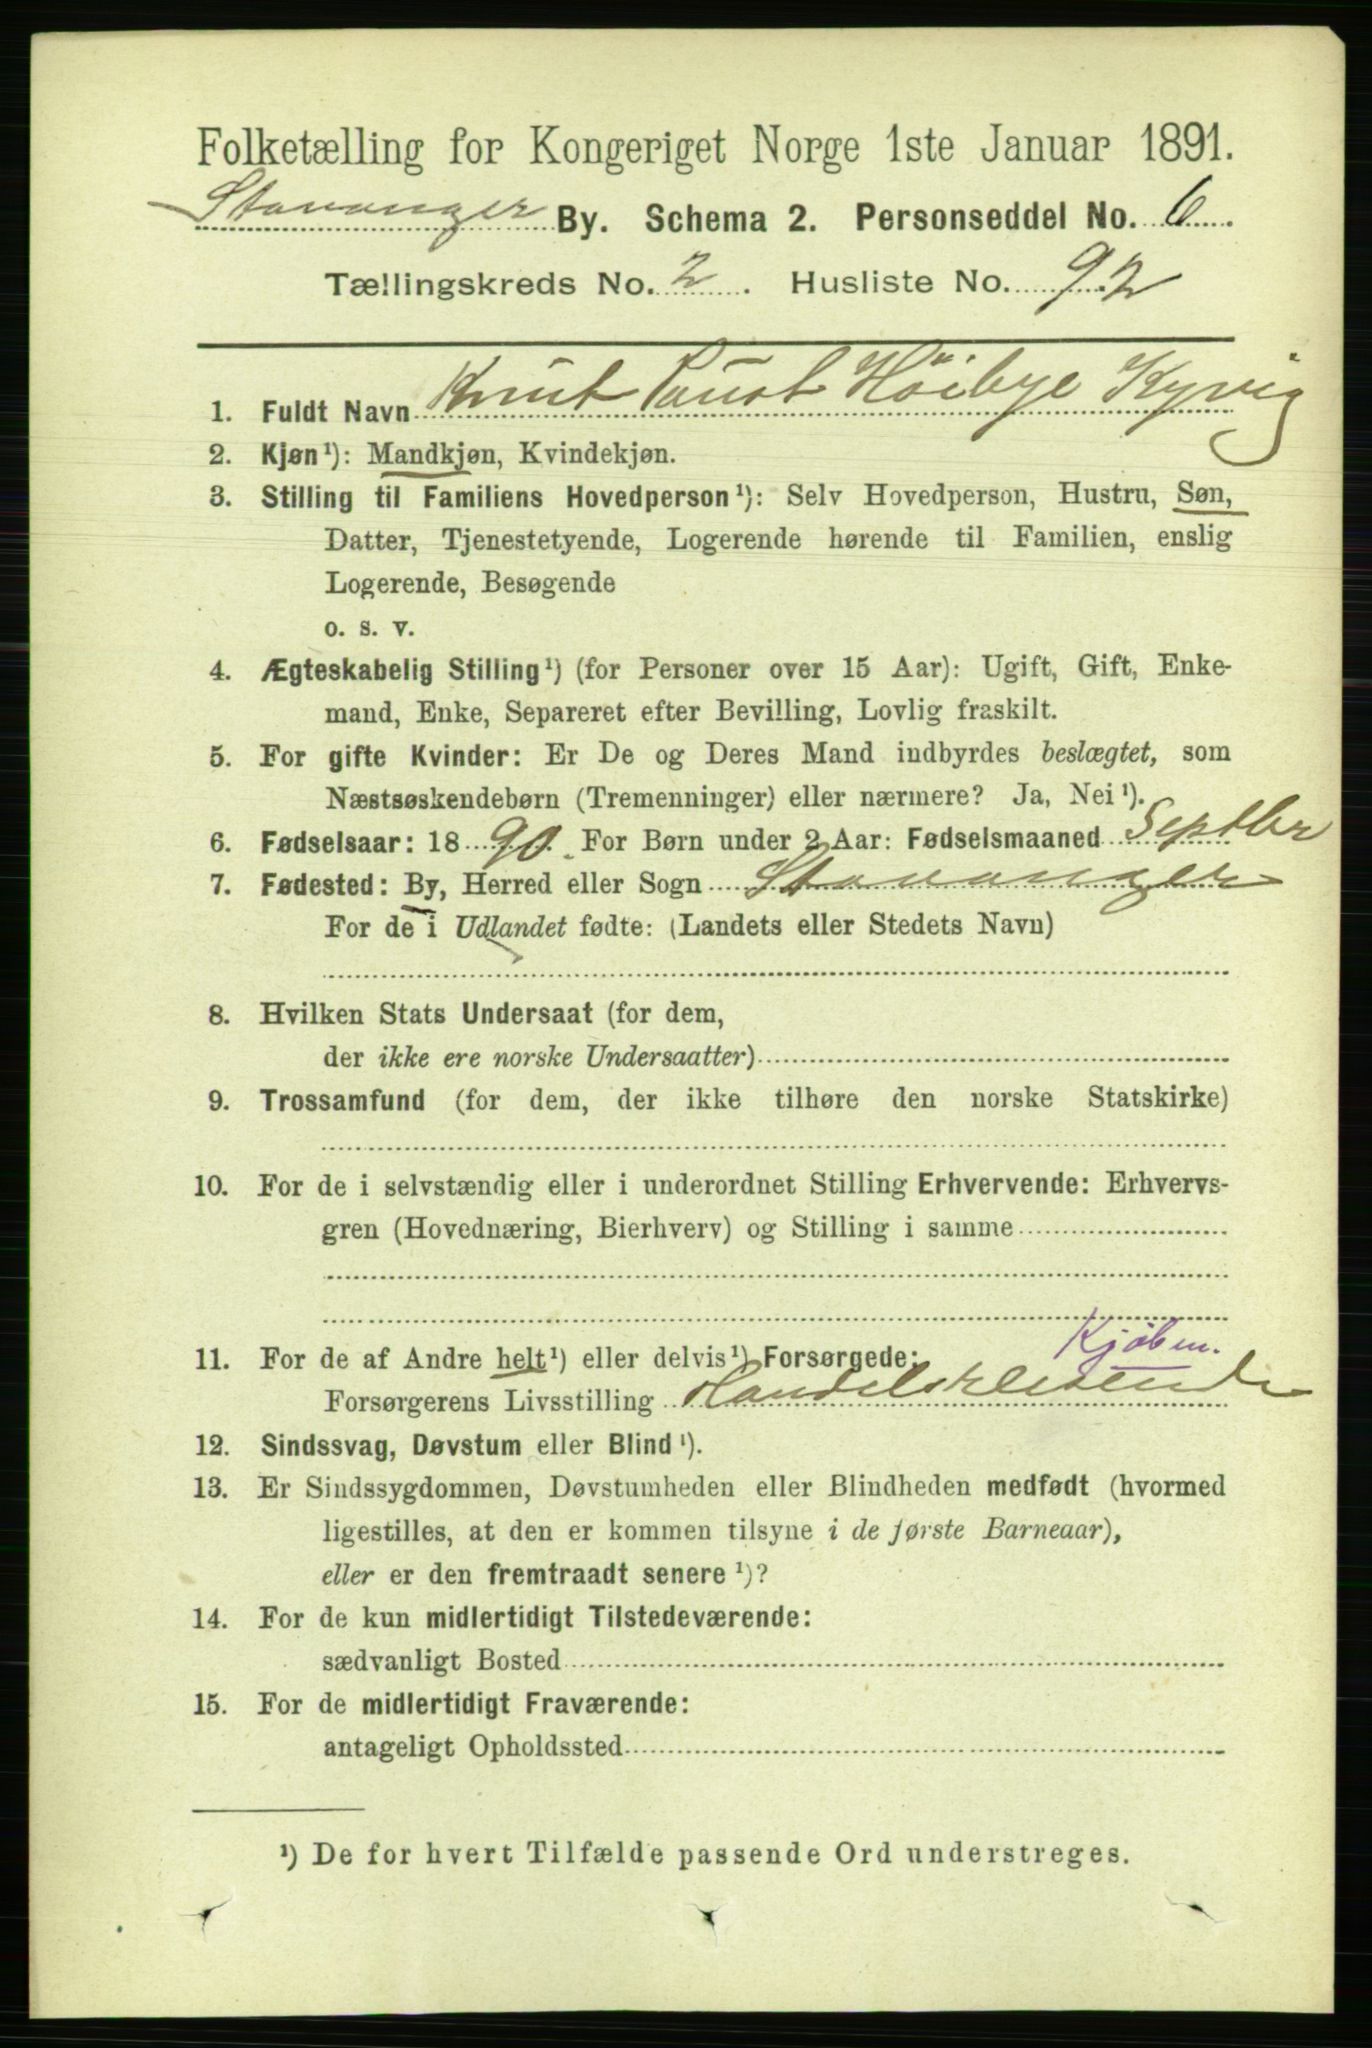 Folketælling for Kongeriget Norge 1ste Januar 1891.
Stavanger By. Schema 2. Personseddel No. 6.
Tællingskreds No. 2. Husliste No. 92
1. Fuldt Navn Knut Höibye Kyvig
2. Kjøn¹): Mandkjøn, Kvindekjøn.
3. Stilling til Familiens Hovedperson¹): Selv Hovedperson, Hustru, Søn,
Datter, Tjenestetyende, Logerende hørende til Familien, enslig
Logerende, Besøgende
o. s. v.
4. Ægteskabelig Stilling¹) (for Personer over 15 Aar): Ugift, Gift, Enke-
mand, Enke, Separeret efter Bevilling, Lovlig fraskilt.
5. For gifte Kvinder: Er De og Deres Mand indbyrdes beslægtet, som
Næstsøskendebørn (Tremenninger) eller nærmere? Ja, Nei¹).
6. Fødselsaar: 1890. For Børn under 2 Aar: Fødselsmaaned Septbr
7. Fødested: By, Herred eller Sogn Stavanger
For de i Udlandet fødte: (Landets eller Stedets Navn)
8. Hvilken Stats Undersaat (for dem,
der ikke ere norske Undersaatter)
9. Trossamfund (for dem, der ikke tilhøre den norske Statskirke)
10. For de i selvstændig eller i underordnet Stilling Erhvervende: Erhvervs-
gren (Hovednæring, Bierhverv) og Stilling i samme
Kjöbm.
11. For de af Andre helt¹) eller delvis¹) Forsørgede:
Forsørgerens Livsstilling Handelsreisende
12. Sindssvag, Døvstum eller Blind¹).
13. Er Sindssygdommen, Døvstumheden eller Blindheden medfødt (hvormed
ligestilles, at den er kommen tilsyne i de første Barneaar),
eller er den fremtraadt senere¹)?
14. For de kun midlertidigt Tilstedeværende:
sædvanligt Bosted
15. For de midlertidigt Fraværende:
antageligt Opholdssted
¹) De for hvert Tilfælde passende Ord understreges.